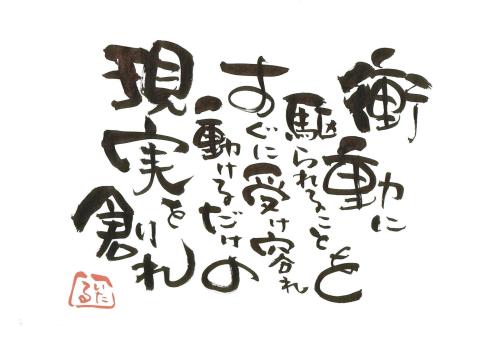 衝動に
駆られることを
すぐに受け容れ
動けるだけの
現実を
創れ
いたる